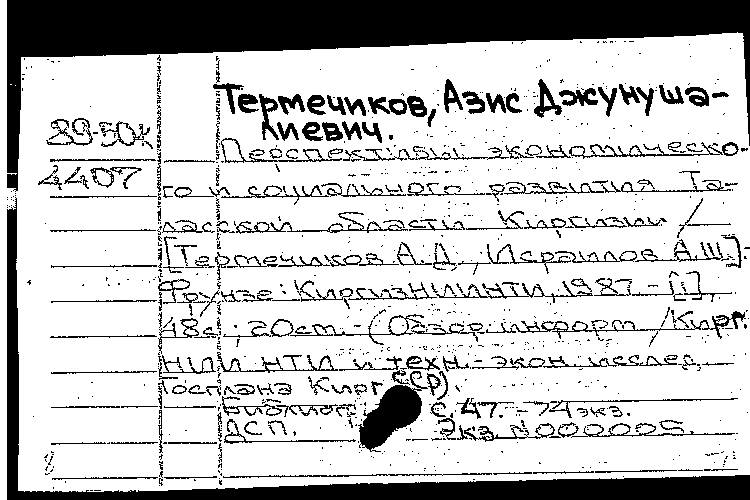 Термечиков, Азис Джунуша-
лиевич.
89-50к
Перспективы экономическо-
4407
го и социального развития Та-
ласской области Киргизии /
[Термечиков А.Д., Исраилов А.Ш.].-
Фрунзе: КиргизНИИНТИ, 1987.- [1],
48с.; 20см.- (Обзор. информ. / Кирг.
НИИ НТИ и техн.-экон. исслед.
Госплана Кирг ССР).
Библиогр. с.47. - 74экз.
ДСП. Экз. N000005.
8